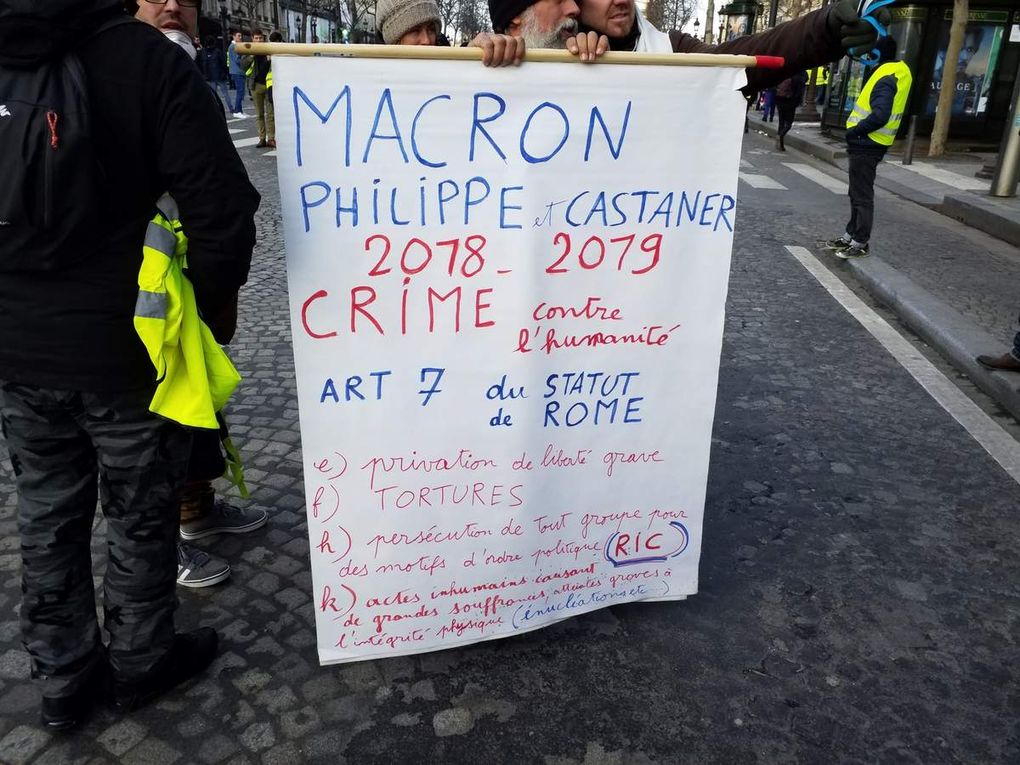 MACRON
PHiLiPPE et CASTANER
2018 - 2019
CRiME contre
l'humanité
ART 7 du STATUT
de ROME
e) privation de liberté grave
f) TORTURES
h) persécution de tout groupe pour
des motifs d'ordre politique (R.I.C)
k) actes inhumains causant
de grandes souffrances, atteintes graves à
l'intégrité physique (énucléations etc...)